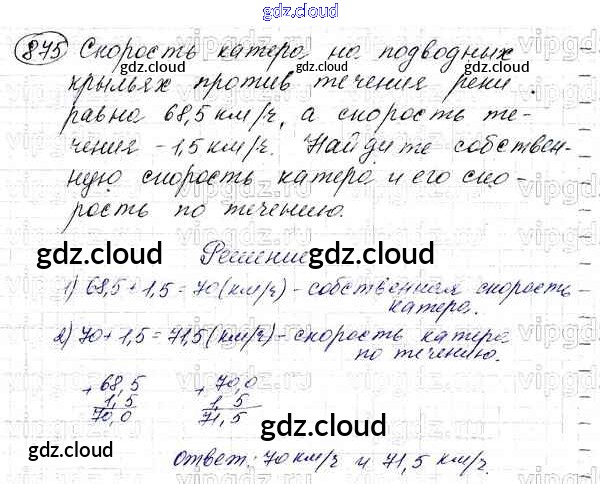 gdz.cloud
875 Скорость катера на подводных
gdz.cloud gdz.cloud
крыльях против течения реки
равна 68,5 км/ч, а скорость те-
чения - 1,5 км/ч. Найдите собствен-
ную скорость катера и его ско-
рость по течению.
gdz.cloud gdz.cloud
Решение
1) 68,5 + 1,5 = 70 (км/ч) - собственная скорость
катера.
2) 70 + 1,5 = 71,5 (км/ч) - скорость катера
по течению.
+ 68,5 + 70,0
1,5 1,5
70,0 71,5
gdz.cloud
ответ: 70 км/ч и 71,5 км/ч.
gdz.cloud gdz.cloud